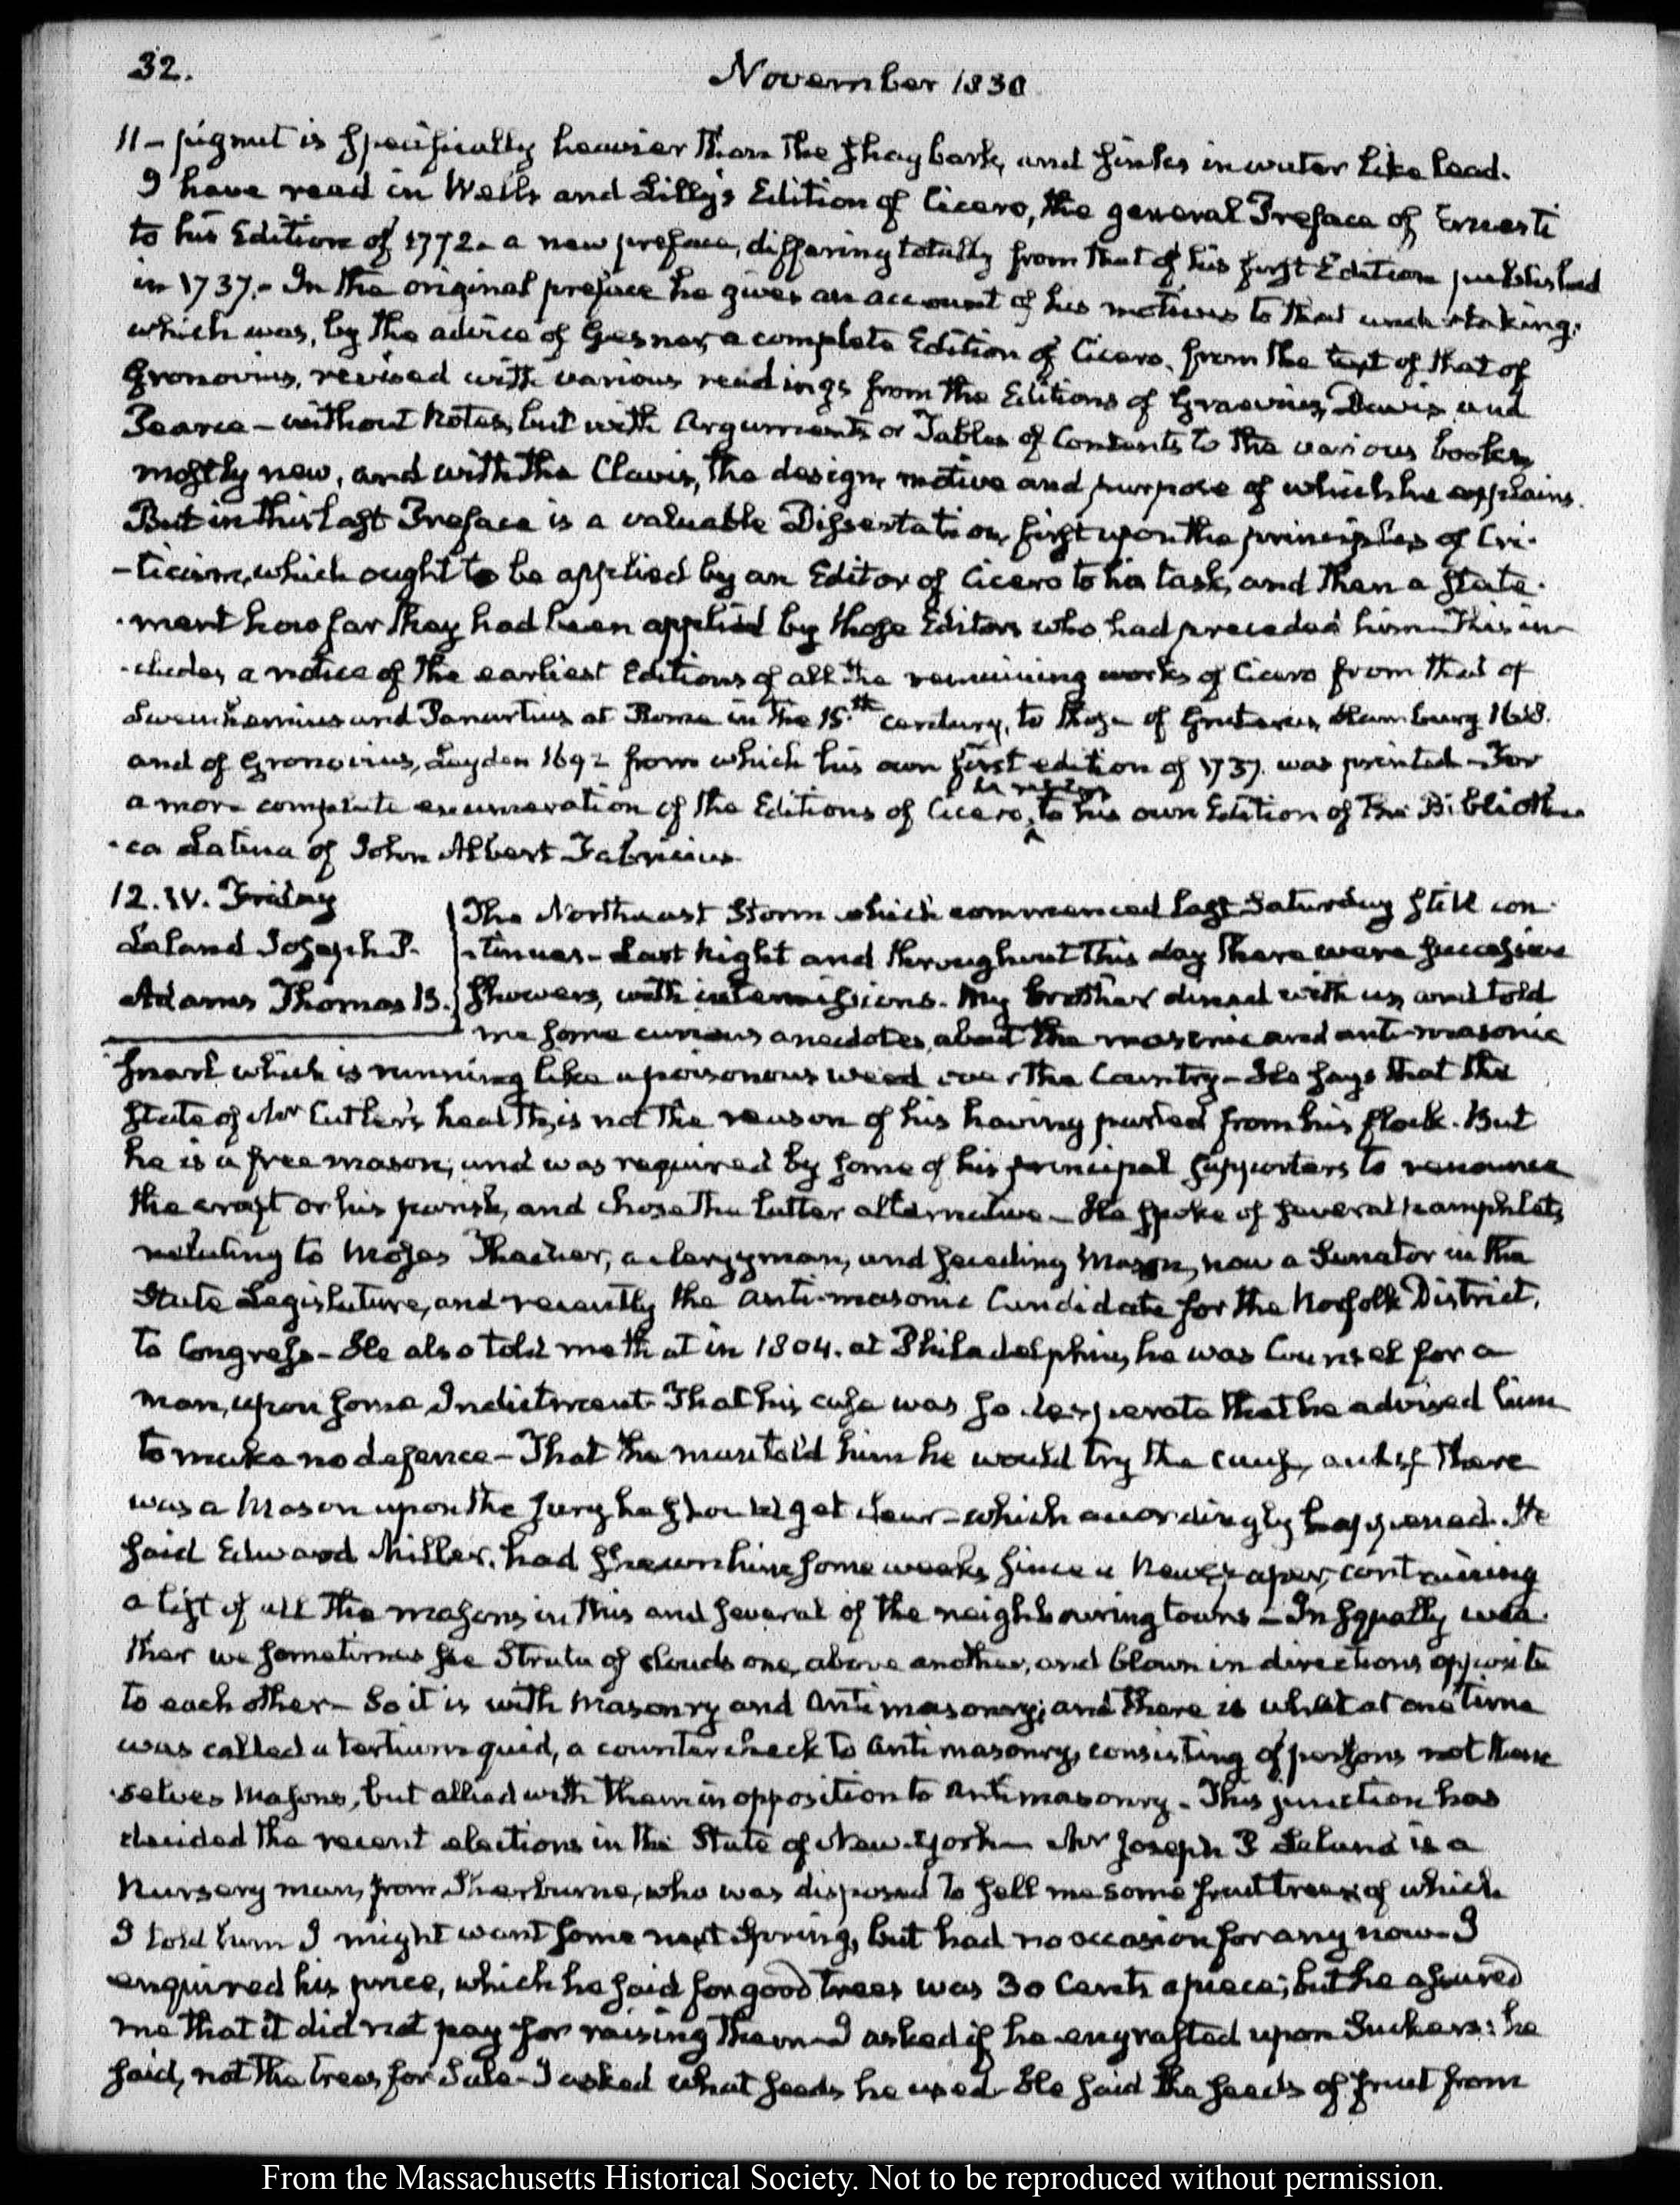 32.
November 1830
11 - pignut is specifically heavier than the shagbark, and sinks in water like lead.
I have read in Wells and Lilly's Edition of Cicero, the general Preface of Ernesti
to his Edition of 1772. a new preface, differing totally from that of his first Edition published
in 1737.- In the original preface he gives an account of his motives to that undertaking,
which was, by the advice of Gesner, a complete Edition of Cicero, from the text of that of
Gronovius, revised with various readings from the Editions of Graevius, Davis and
Pearce - without Notes, but with Arguments or Tables of Contents to the various books,
mostly new, and with the Clavis, the design, motive and purpose of which he explains.
But in this last Preface is a valuable Dissertation, first upon the principles of Cri-
-ticism, which ought to be applied by an Editor of Cicero to his task, and then a state-
-ment how far they had been applied by those Editors who had preceded him - This in-
-cludes a notice of the earliest Editions of all the remaining works of Cicero from that of
Sweynhemius and Panartius at Rome in the 15.th century, to those of Gruterus, Hamburg 1618.
and of Gronovius, Leyden 1692 from which his own first edition of 1737. was printed - For
a more complete enumeration of the Editions of Cicero, he refers to his own Edition of the Bibliothe-
-ca Latina of John Albert Fabricius.
12. IV. Friday
Leland Joseph P.
Adams Thomas B.
The Northeast Storm which commenced last Saturday still con-
-tinues - Last Night and throughout this day there were successive
showers, with intermissions. My brother dined with us, and told
me some curious anecdotes, about the masonic and anti-masonic
snarl which is running like a poisonous weed over the Country - He says that the
state of Mr Cutler's health, is not the reason of his having parted from his flock. But
he is a free mason, and was required by some of his principal supporters to renounce
the craft or his parish, and chose the latter alternative - He spoke of several pamphlets
relating to Moses Thacher, a clergyman, and seceding Mason, now a Senator in the
State Legislature, and recently the anti-masonic Candidate for the Norfolk District,
to Congress - He also told me that in 1804. at Philadelphia, he was Counsel for a
man, upon some Indictment. That his case was so desperate that he advised him
to make no defence - That the man told him he would try the cause, and if there
was a Mason upon the Jury he should get clear - which accordingly happened. He
said Edward Miller, had shewn him some weeks since a Newspaper, containing
a list of all the masons in this and several of the neighbouring towns - In squally wea-
ther we sometimes see Strata of clouds one, above another, and blown in directions opposite
to each other - So it is with Masonry and Antimasonry; and there is what at one time
was called a tertium quid, a countercheck to antimasonry, consisting of persons not them-
-selves Masons, but allied with them in opposition to Antimasonry - This junction has
decided the recent elections in the State of New-York - Mr Joseph P Leland is a
Nursery man, from Sherburne, who was disposed to sell me some fruit trees, of which
I told him I might want some next Spring, but had no occasion for any now - I
enquired his price, which he said for good trees was 30 Cents apiece; but he assured
me that it did not pay for raising them - I asked if he engrafted upon Suckers: he
said, not the trees for Sale - I asked what seeds he used - He said the seeds of fruit from
From the Massachusetts Historical Society. Not to be reproduced without permission.